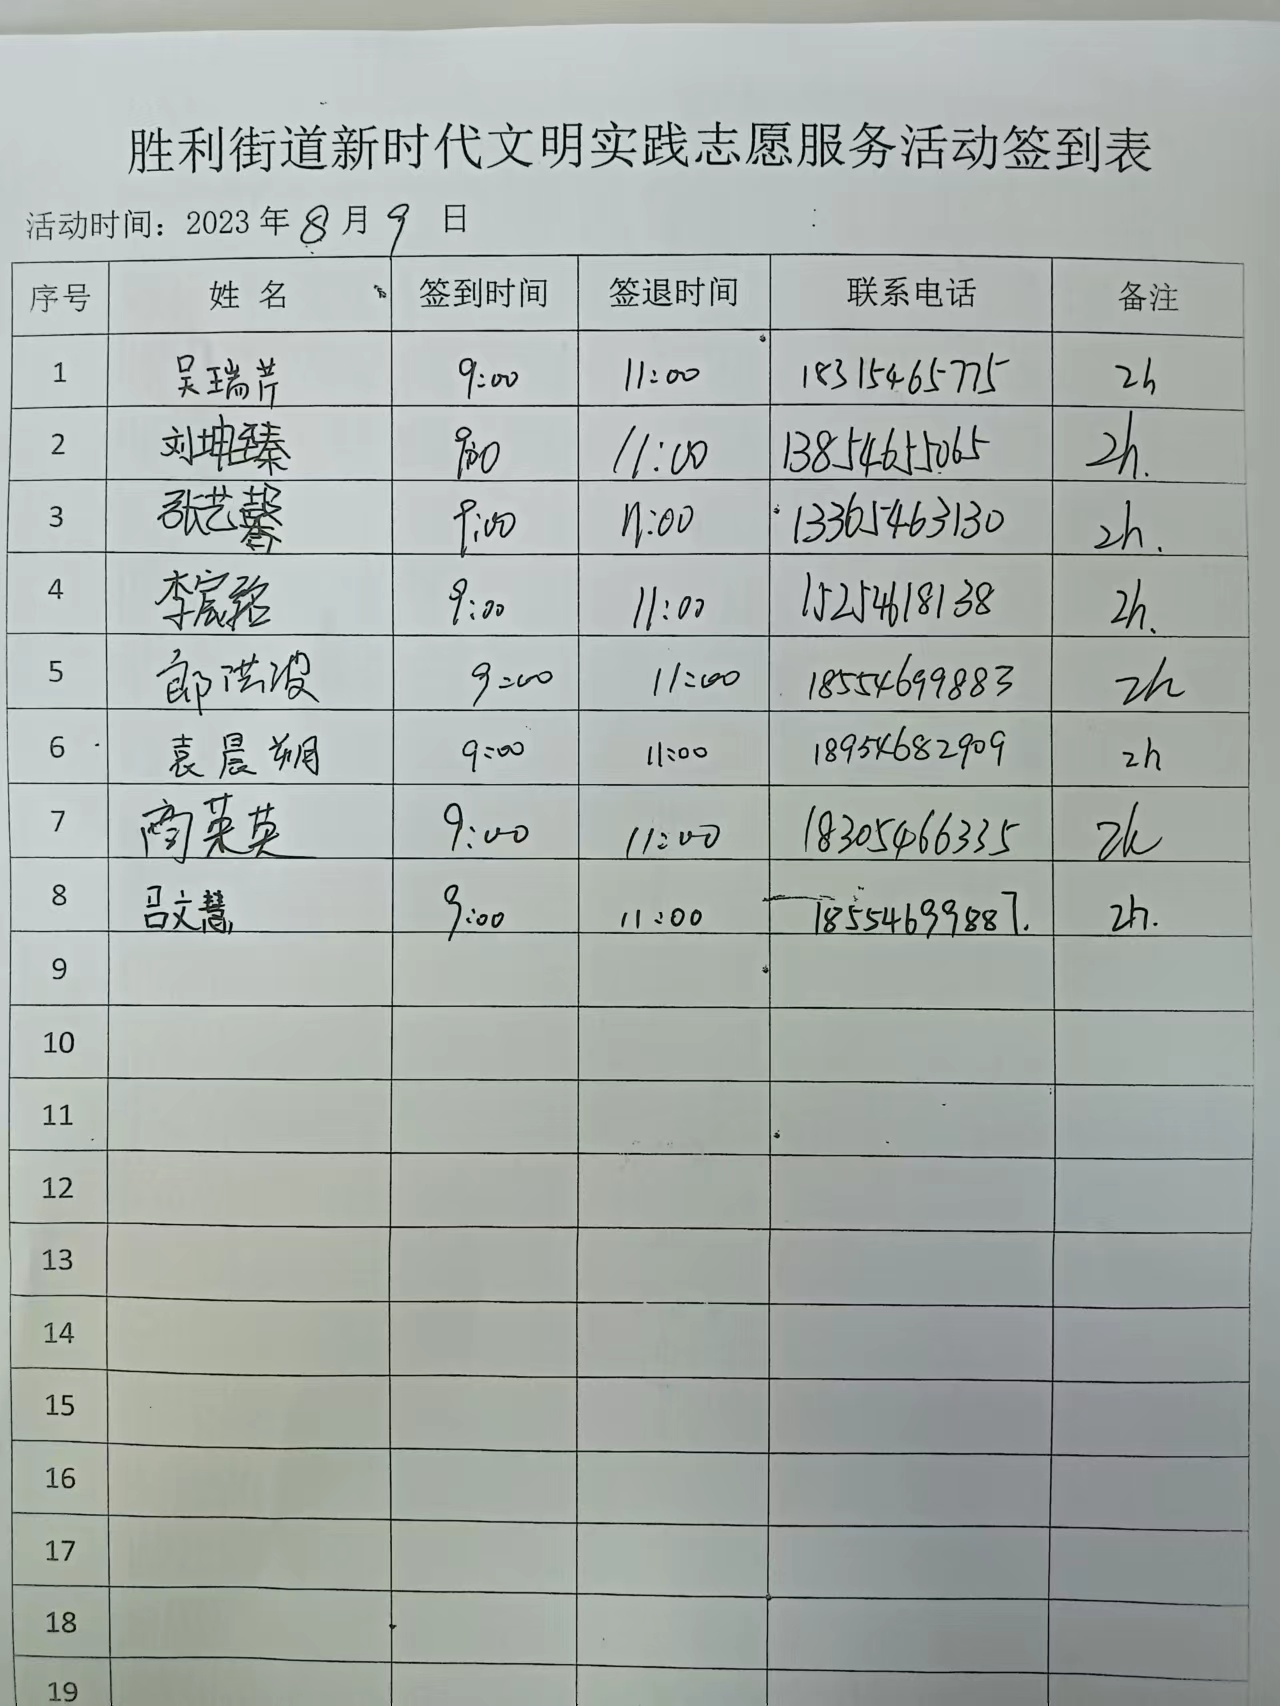 胜利街道新时代文明实践志愿服务活动签到表
活动时间：2023年8月9日
序号 姓名 签到时间 签退时间 联系电话 备注
1 吴瑞芹 9:00 11:00 18315465775 2h
2 刘坤臻 9:00 11:00 13854655065 2h.
3 张艺馨 9:00 11:00 13365463130 2h.
4 李宸 9:00 11:00 15254618138 2h.
5 郎洪波 9:00 11:00 18554699883 2h
6 袁晨朔 9:00 11:00 18954682909 2h
7 商英 9:00 11:00 18305466335 2h
8 吕文慧 9:00 11:00 18554699887. 2h.
9
10
11
12
13
14
15
16
17
18
19